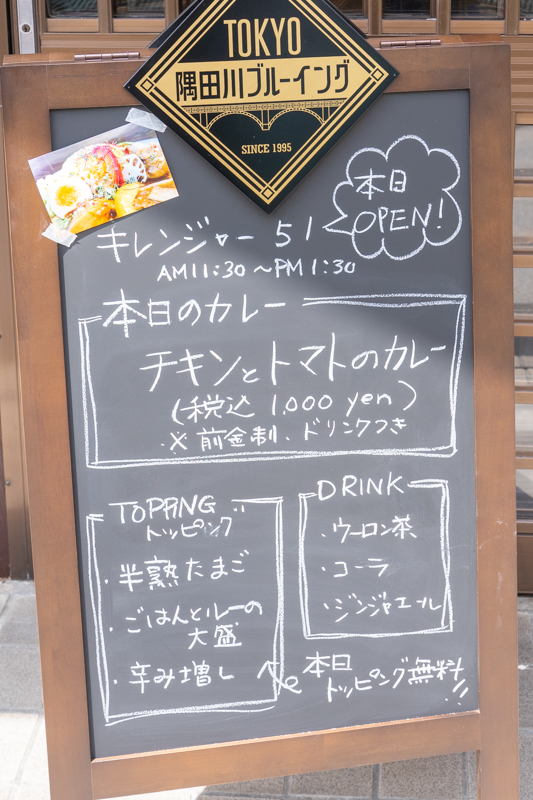 TOKYO
隅田川ブルーイング
SINCE 1995
本日
OPEN!
キレンジャー 51
AM11:30〜PM1:30
本日のカレー
チキンとトマトのカレー
(税込 1,000 yen)
※前金制、ドリンクつき
TOPPING
トッピング
・半熟たまご
・ごはんとルーの
大盛
・辛み増し
DRINK
・ウーロン茶
・コーラ
・ジンジャエール
本日
トッピング無料!!